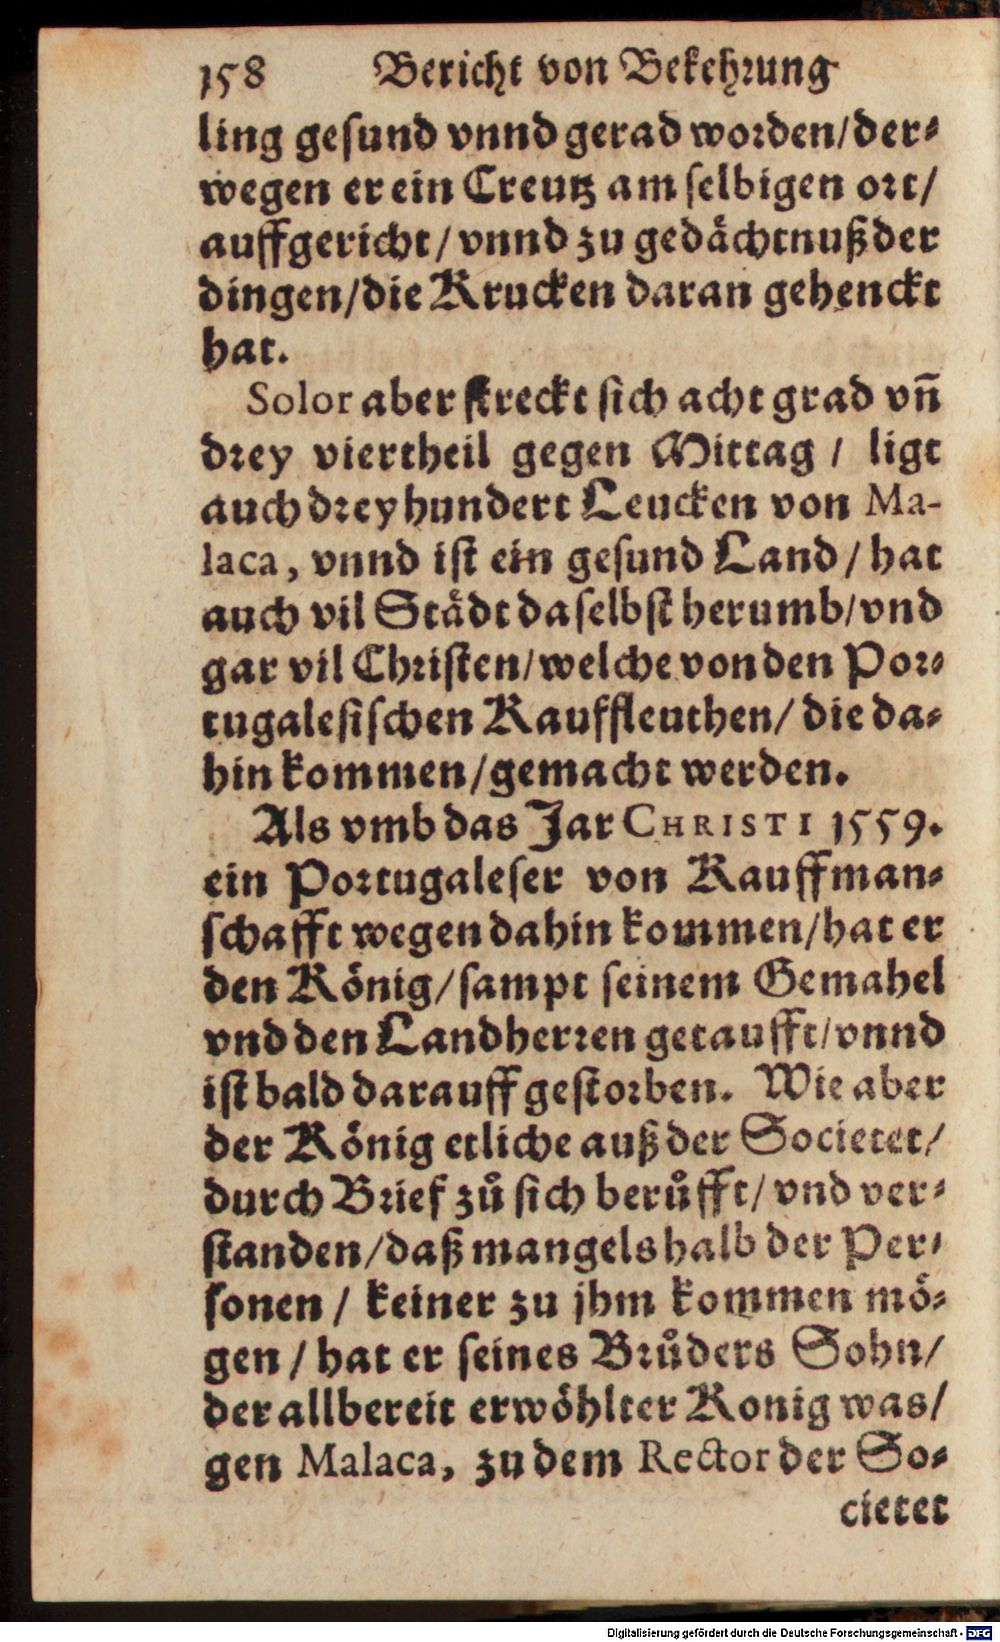 158 Bericht von Bekehrung
ling gesund vnnd gerad worden/der⸗
wegen er ein Creutz am selbigen ort/
auffgericht/vnnd zu gedächtnuß der
dingen/die Krucken daran gehenckt
hat.
Solor aber streckt sich acht grad vñ
drey viertheil gegen Mittag / ligt
auch drey hundert Leucken von Ma-
laca, vnnd ist ein gesund Land / hat
auch vil Städt daselbst herumb/vnd
gar vil Christen/welche von den Por⸗
tugalesischen Kauffleuthen/ die da⸗
hin kommen/gemacht werden.
Als vmb das Jar CHRISTI 1559.
ein Portugaleser von Kauffman⸗
schafft wegen dahin kommen/hat er
den König/sampt seinem Gemahel
vnd den Landherren getaufft/vnnd
ist bald darauff gestorben. Wie aber
der König etliche auß der Societet/
durch Brief zů sich berůfft/ vnd ver⸗
standen/daß mangels halb der Per⸗
sonen / keiner zu jhm kommen mö⸗
gen / hat er seines Brůders Sohn/
der allbereit erwöhlter Konig was/
gen Malaca, zu dem Rector der So⸗
cietet
Digitalisierung gefördert durch die Deutsche Forschungsgemeinschaft - DFG